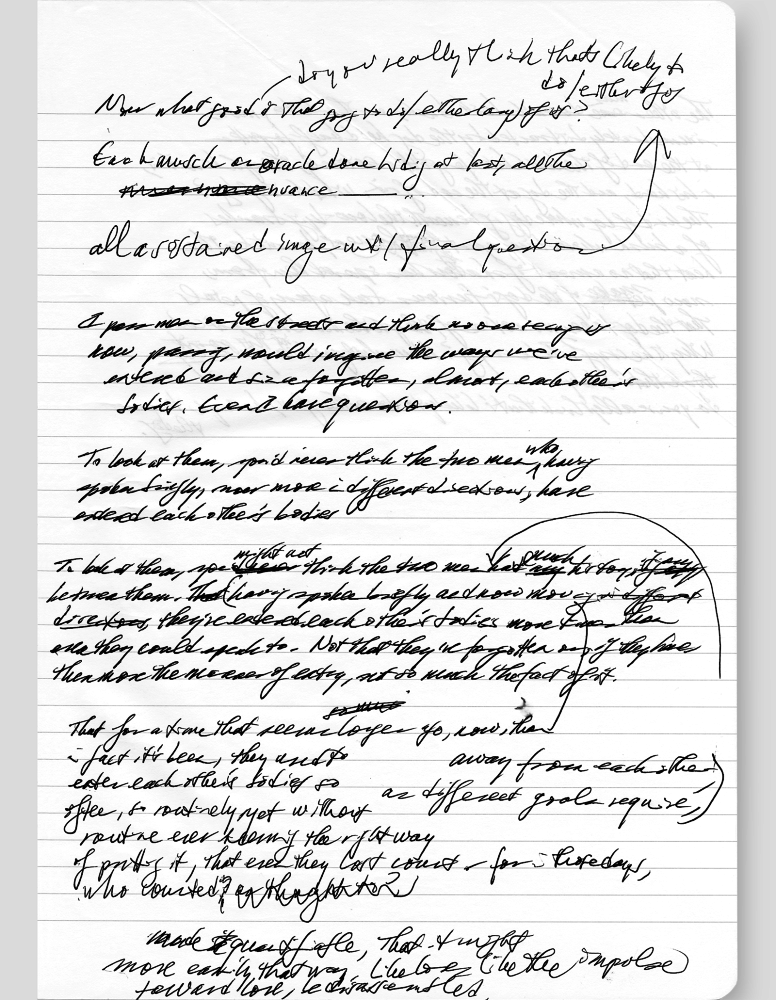 do you really think that's likely to
do/either of us
Now what good is that going to do/either (any) of us?
Each muscle done at last, all the
nuance
all a sustained image w/ final question
I pass men on the streets and think no one seeing us
now, passing, would imagine the ways we've
entered and since forgotten, almost, each other's
bodies. Even I have questions.
To look at them, you'd never think the two men who, having
spoken briefly, now move in different directions, have
entered each other's bodies
might not
To look at them, you think the two men had much history, if any
between them. That having spoken briefly and now move in different
directions, they've entered each other's bodies more times than
one they could speak to. Not that they've forgotten or if they have
then more the manner of entry, not so much the fact of it.
That for a time that seems longer ago, now, than
in fact it's been, they used to
away from each other
enter each other's bodies so
as different goals require,
often, so routinely yet without
routine ever seeming the right way
of putting it, that even they lost count – for in those days,
who counted? or thought to?
made quantifiable, that it might
more easily, that way, like love, like the impulse
toward love, be disassembled,